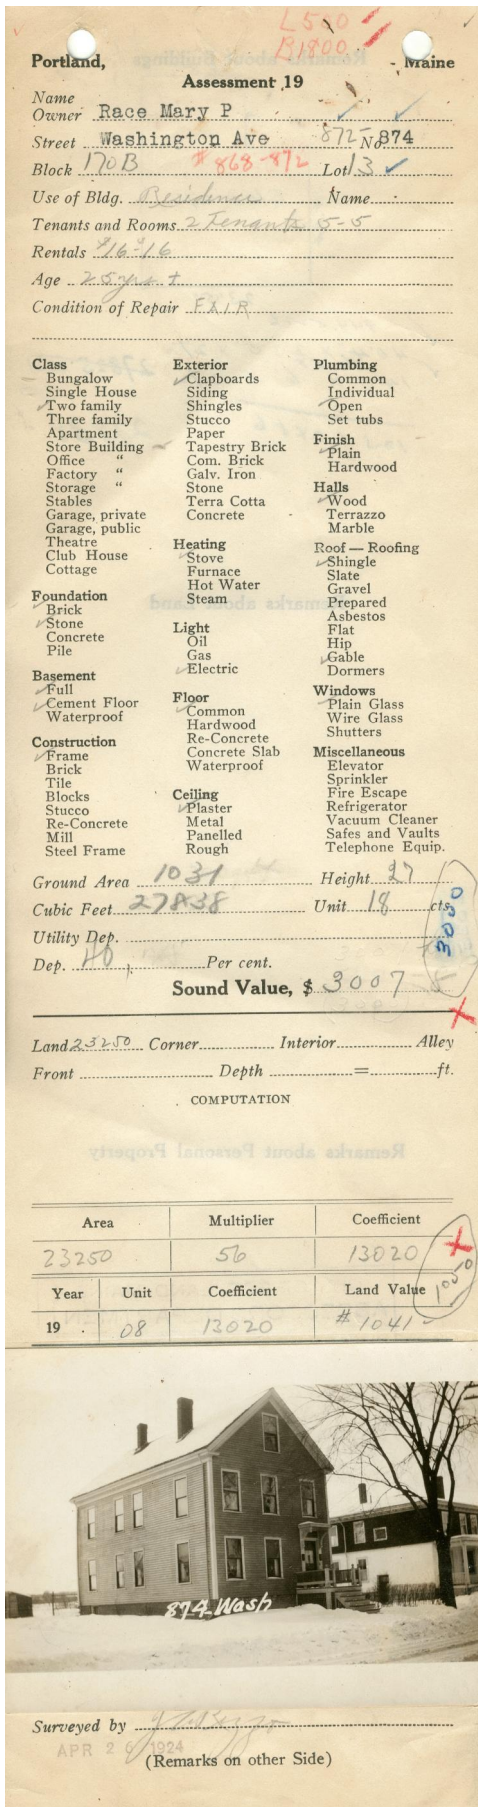 L 500
B 1800
Portland, Maine
Assessment 19
Name
Owner Race Mary P
Street Washington Ave 872- No 874
Block 170B # 868-872 Lot 13
Use of Bldg. Residence Name
Tenants and Rooms 2 Tenants 5-5
Rentals $16 $16
Age 25 yrs +
Condition of Repair FAIR
Class
Bungalow
Single House
Two family
Three family
Apartment
Store Building
Office "
Factory "
Storage "
Stables
Garage, private
Garage, public
Theatre
Club House
Cottage
Foundation
Brick
Stone
Concrete
Pile
Basement
Full
Cement Floor
Waterproof
Construction
Frame
Brick
Tile
Blocks
Stucco
Re-Concrete
Mill
Steel Frame
Exterior
Clapboards
Siding
Shingles
Stucco
Paper
Tapestry Brick
Com. Brick
Galv. Iron
Stone
Terra Cotta
Concrete
Heating
Stove
Furnace
Hot Water
Steam
Light
Oil
Gas
Electric
Floor
Common
Hardwood
Re-Concrete
Concrete Slab
Waterproof
Ceiling
Plaster
Metal
Panelled
Rough
Plumbing
Common
Individual
Open
Set tubs
Finish
Plain
Hardwood
Halls
Wood
Terrazzo
Marble
Roof — Roofing
Shingle
Slate
Gravel
Prepared
Asbestos
Flat
Hip
Gable
Dormers
Windows
Plain Glass
Wire Glass
Shutters
Miscellaneous
Elevator
Sprinkler
Fire Escape
Refrigerator
Vacuum Cleaner
Safes and Vaults
Telephone Equip.
Ground Area 1031 Height 27
Cubic Feet 27838 Unit 18 cts.
3000
Utility Dep.
Dep. 40 Per cent.
Sound Value, $ 3007
Land 23250 Corner Interior Alley
Front Depth = ft.
COMPUTATION
Remarks about Personal Property
Area Multiplier Coefficient
23250 56 13020
Year Unit Coefficient Land Value
1050
19 08 13020 # 1041-
874 Wash
Surveyed by
APR 26 1924
(Remarks on other Side)